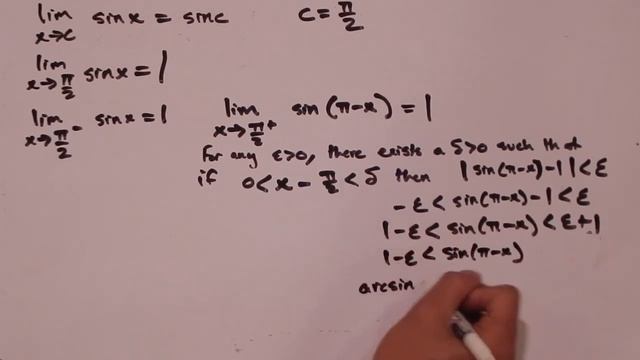 lim x→c sinx = sinc
c = π/2
lim x→π/2 sinx = 1
lim x→π/2⁻ sinx = 1
lim x→π/2⁺ sin(π-x) = 1
For any ε>0, there exists a δ>0 such that
if 0<x-π/2<δ then |sin(π-x)-1|<ε
-ε<sin(π-x)-1<ε
1-ε<sin(π-x)<ε+1
1-ε<sin(π-x)
arcsin